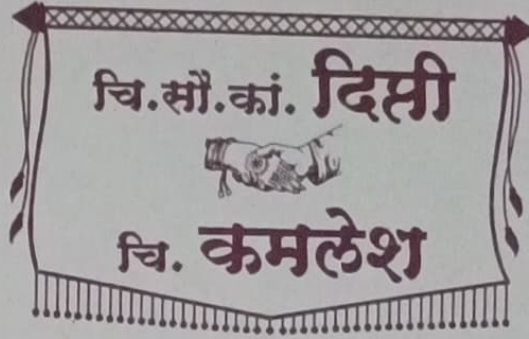 चि.सौ.कां. दिप्ती
चि. कमलेश